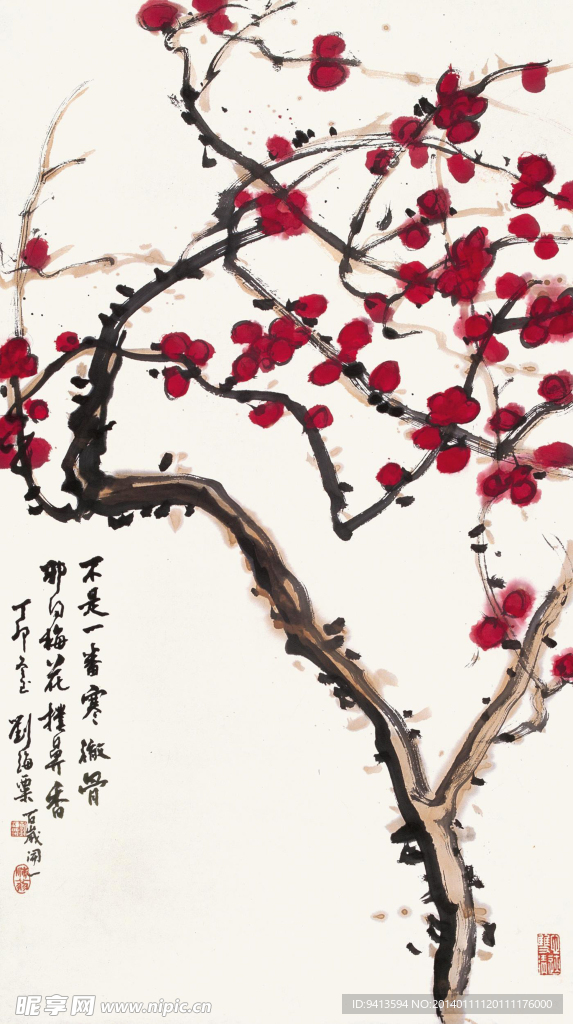 不是一番寒徹骨
那得梅花撲鼻香
丁卯冬至
劉海粟
百歲開一
昵享网 www.nipic.cn
ID:9413594 NO:20140111120111176000